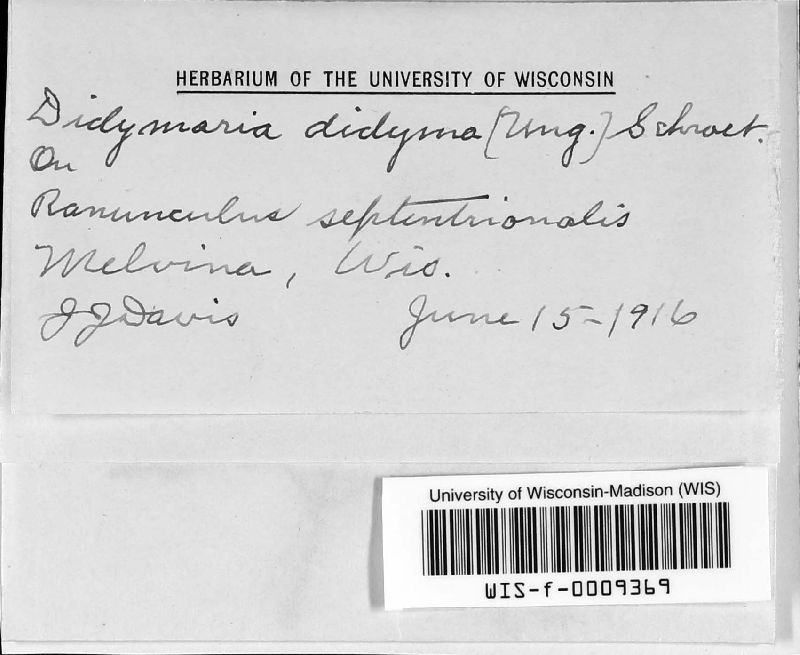 HERBARIUM OF THE UNIVERSITY OF WISCONSIN
Didymaria didyma (Ung.) Schroet.
On
Ranunculus septentrionalis
Melvina, Wis.
J J Davis June 15-1916
University of Wisconsin-Madison (WIS)
WIS-f-0009369